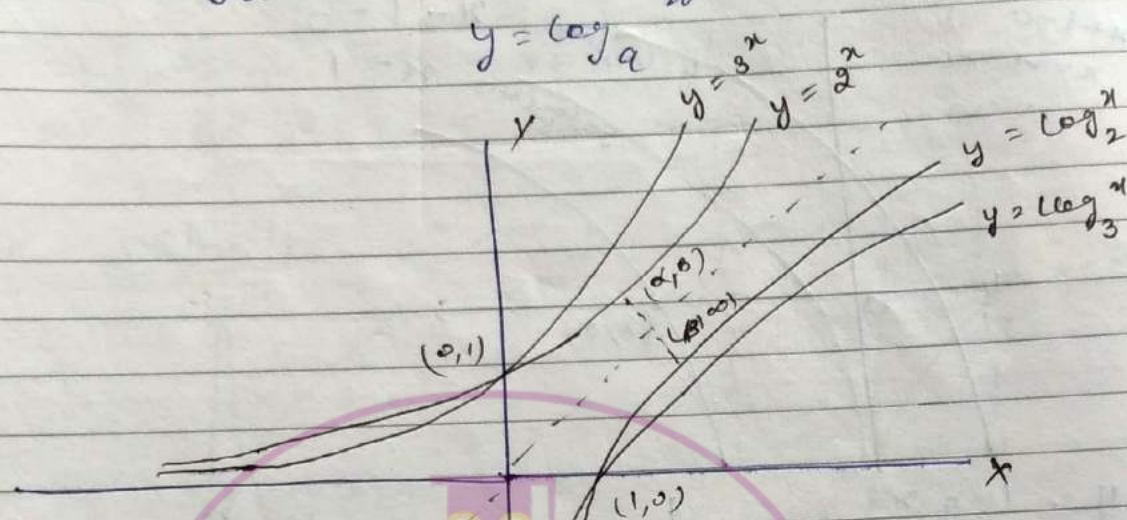 y = log a
y = 3^x
y = 2^x
Y
y = log_2^x
y = log_3^x
(α, β)
(β, α)
(0,1)
X
(1,0)